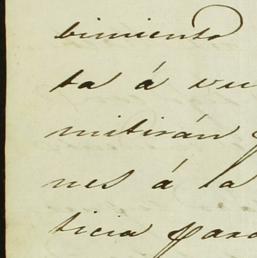 bimiento
ta á vu
mitirán
nes á la
ticia para